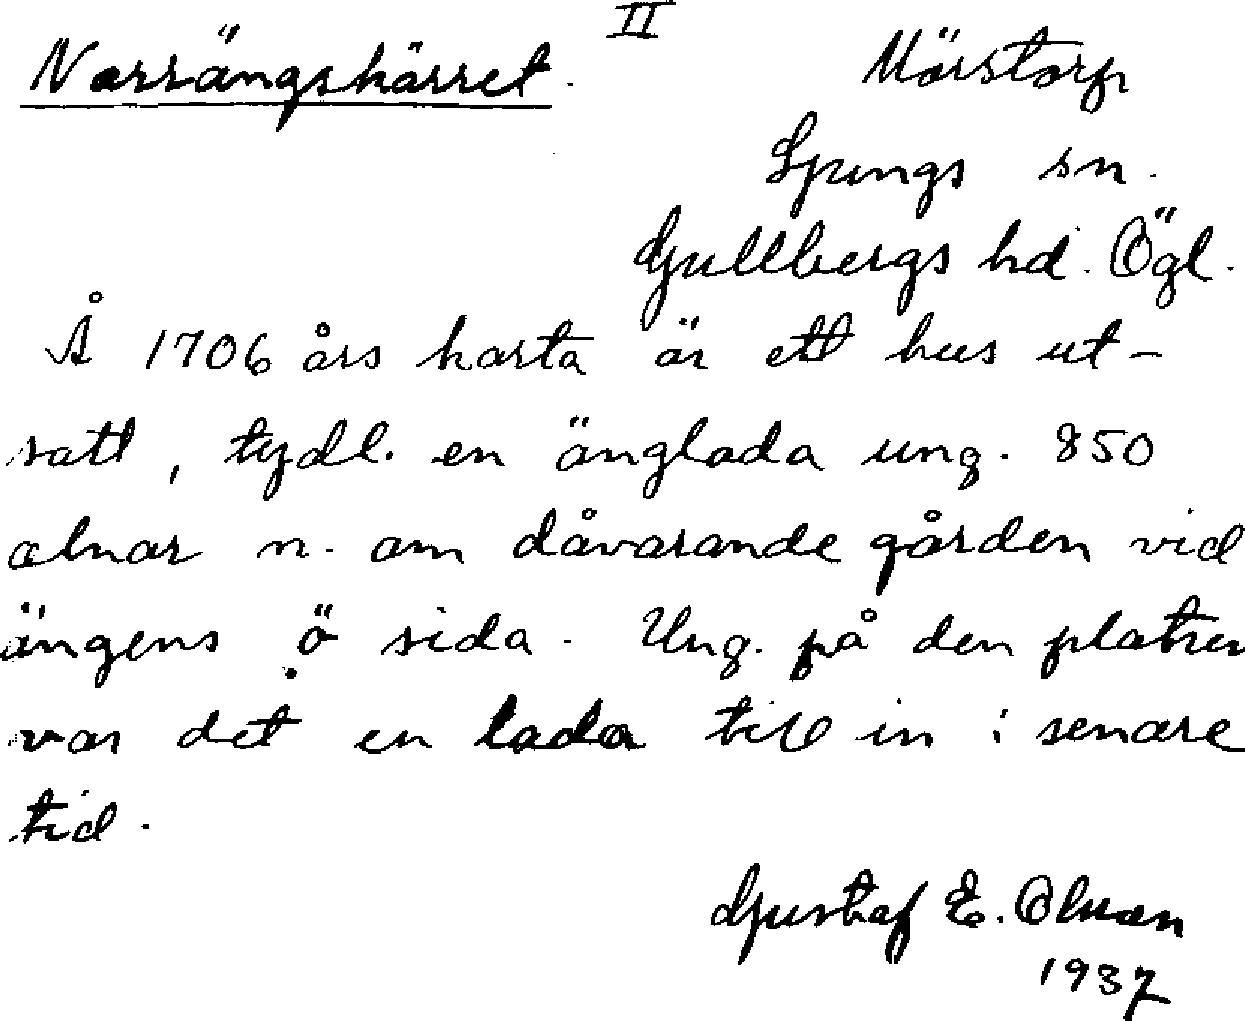 II
Norrängskärret.
Mörstorp
Ljungs sn.
Gullbergs hd. Ögl.
Å 1706 års karta är ett hus ut-
satt, tydl. en änglada ung. 850
alnar n. om dåvarande gården vid
ängens ö sida. Ung. på den platsen
var det en lada till in i senare
tid.
Gustaf E. Olsson
1937